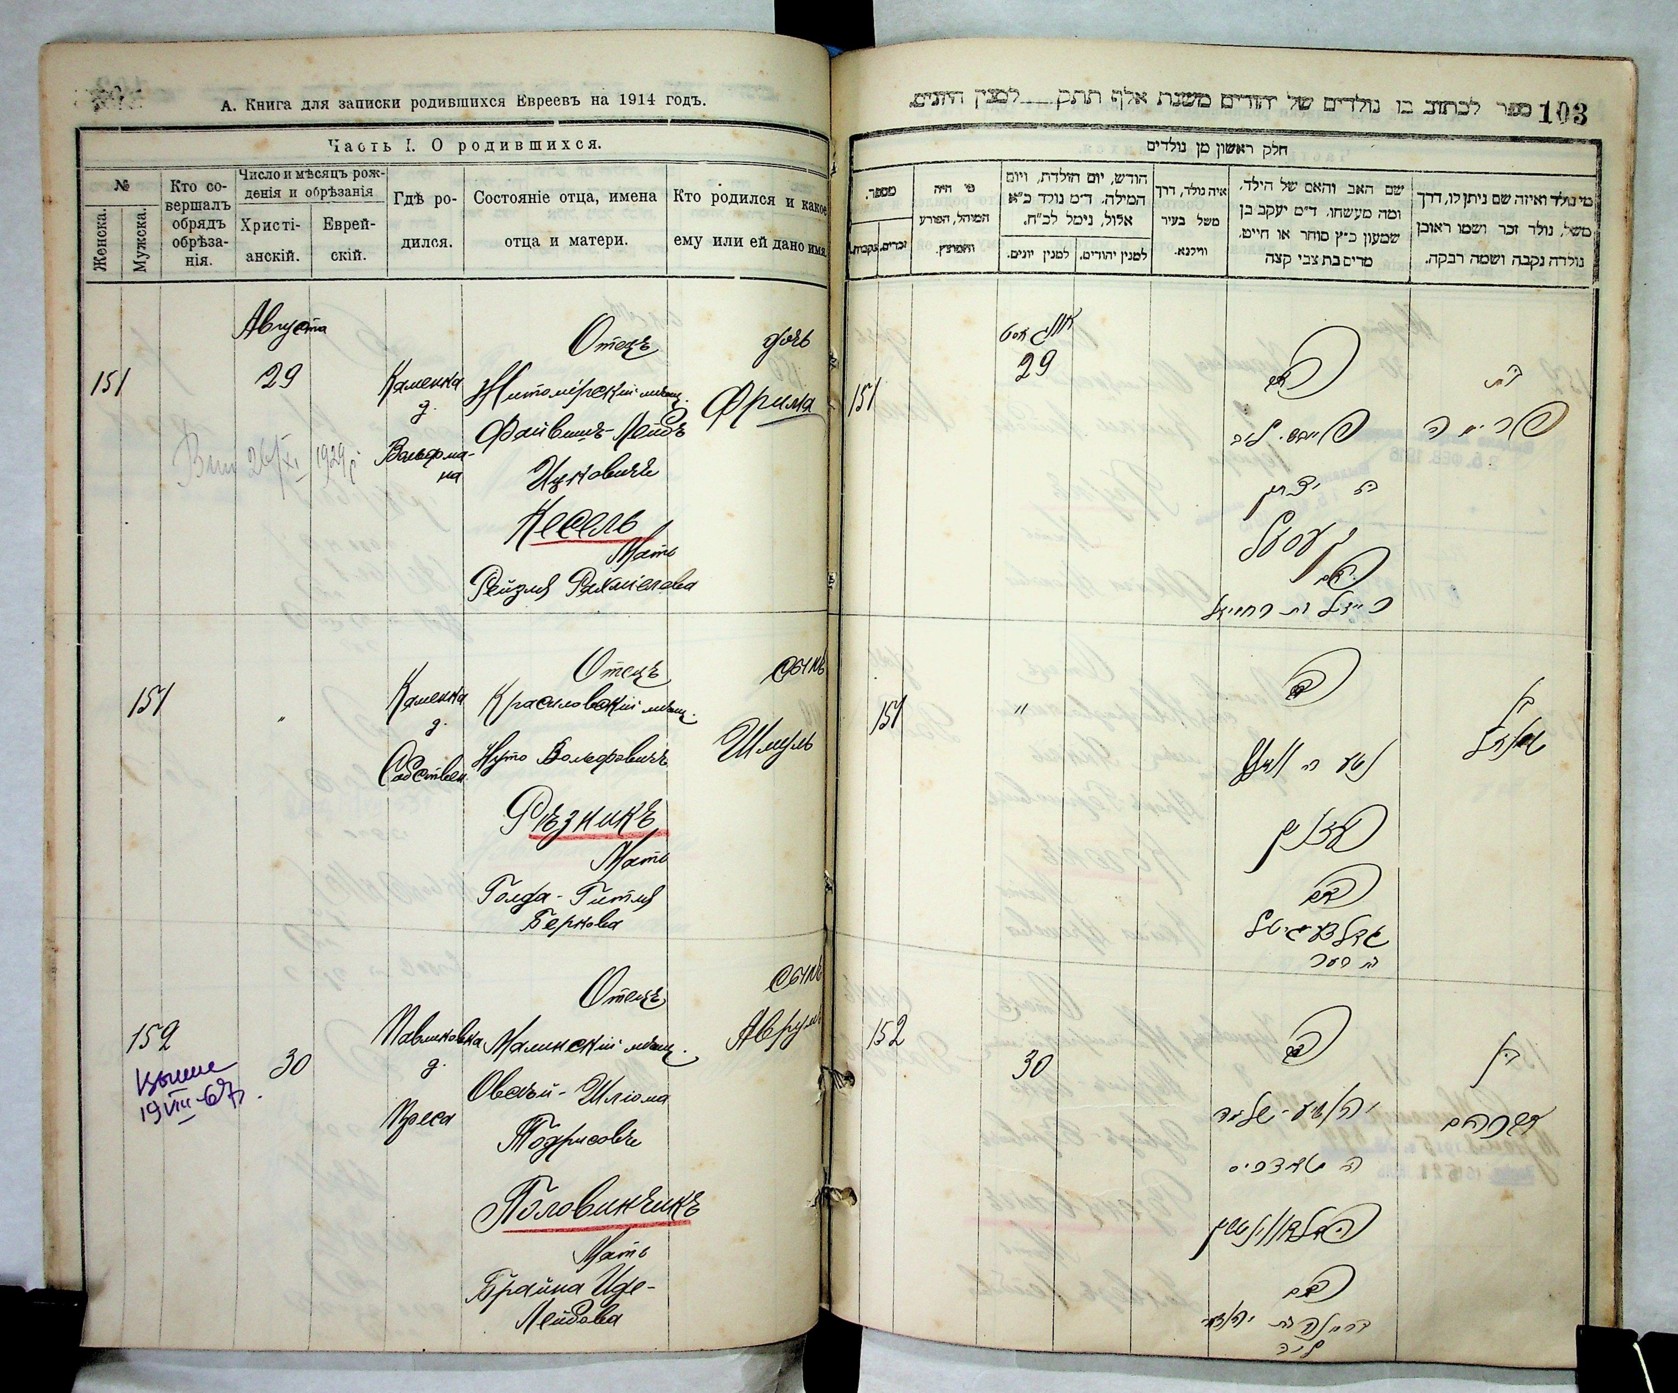 А. Книга для записки родившихся Евреевъ на 1914 годъ.
Часть I. О родившихся.
№
Женска.
Мужска.
Кто со-
вершалъ
обрядъ
обрѣза-
нія.
Число и мѣсяцъ рож-
денія и обрѣзанія
Христі-
анскій.
Еврей-
скій.
Гдѣ ро-
дился.
Состояніе отца, имена
отца и матери.
Кто родился и какое
ему или ей дано имя.
Августа
151
29
Каменка
д.
Вольфма-
на
Отецъ
Житомірскій мѣщ.
Файвишъ-Лейбъ
Ицковичъ
Кесель
Мать
Рейзля Рахмielова
дочь
Фрима
Выд 26/XI 1929 г.
151
"
Каменка
д.
Собствен.
Отецъ
Красиловскій мѣщ.
Нуто Вольфовичъ
Рѣзникъ
Мать
Голда-Гитля
Беркова
сынъ
Шмуль
152
19 VIII-67 г.
30
Павликовка
д.
Отецъ
Малинскій мѣщ.
Овсѣй-Шліома
Тодрисовичъ
Половинчикъ
Мать
Брайна Иде-
Лейбова
сынъ
Аврумъ
103
ספר לכתוב בו נולדים של יהודים משנת אלף תתק למנין היונים.
חלק ראשון מן נולדים
מספר.
זכרים.
נקבות.
מי היה
המוהל, הפורע
והמוצץ.
חודש, יום הולדת, ויום
המילה. ד״מ נולד כ״א
אלול, נימל לכ״ח.
למנין יונים.
למנין יהודים.
איה נולד, דרך
משל בעיר
ווילנא.
שם האב והאם של הילד,
ומה מעשהו. ד״מ יעקב בן
שמעון כ״ץ סוחר או חייט.
מרים בת צבי קצה
מי נולד ואיזה שם ניתן לו, דרך
משל, נולד זכר ושמו ראובן
נולדה נקבה ושמה רבקה.
אווגאסט
151
29
האב
פייוויש ליב
בר יצחק
קעסעל
האם
רייזל בת רחמיאל
בת
פרימה
151
"
האב
נוטע בר וואלף
רעזניק
האם
גאלדע גיטל
בת בער
בן
שמואל
152
30
האב
יהושע-שלמה
בר טאדרוס
פאלאווינטשיק
האם
ליב
בן
אברהם